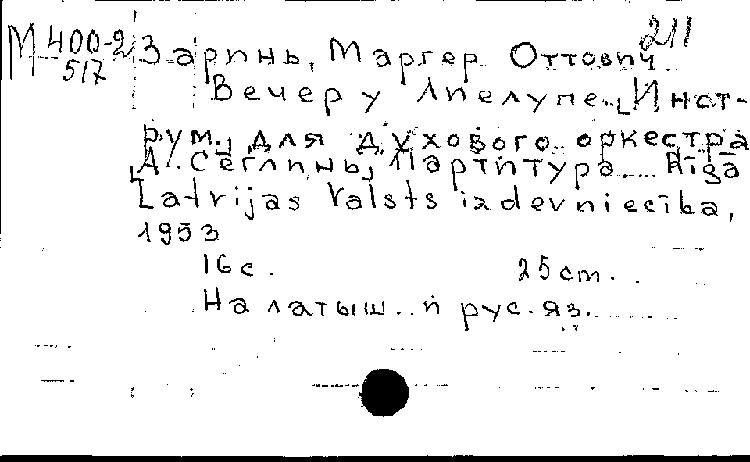 211
М 400-2
517
Заринь, Маргер Оттович
Вечер у Апелупе. [Инст-
рум.] для духового оркестра
[А. Сеглинь] Партитура. Rīgā
Latvijas Valsts izdevniecība,
1953
16 с. 25 cm.
На латыш. и рус. яз.